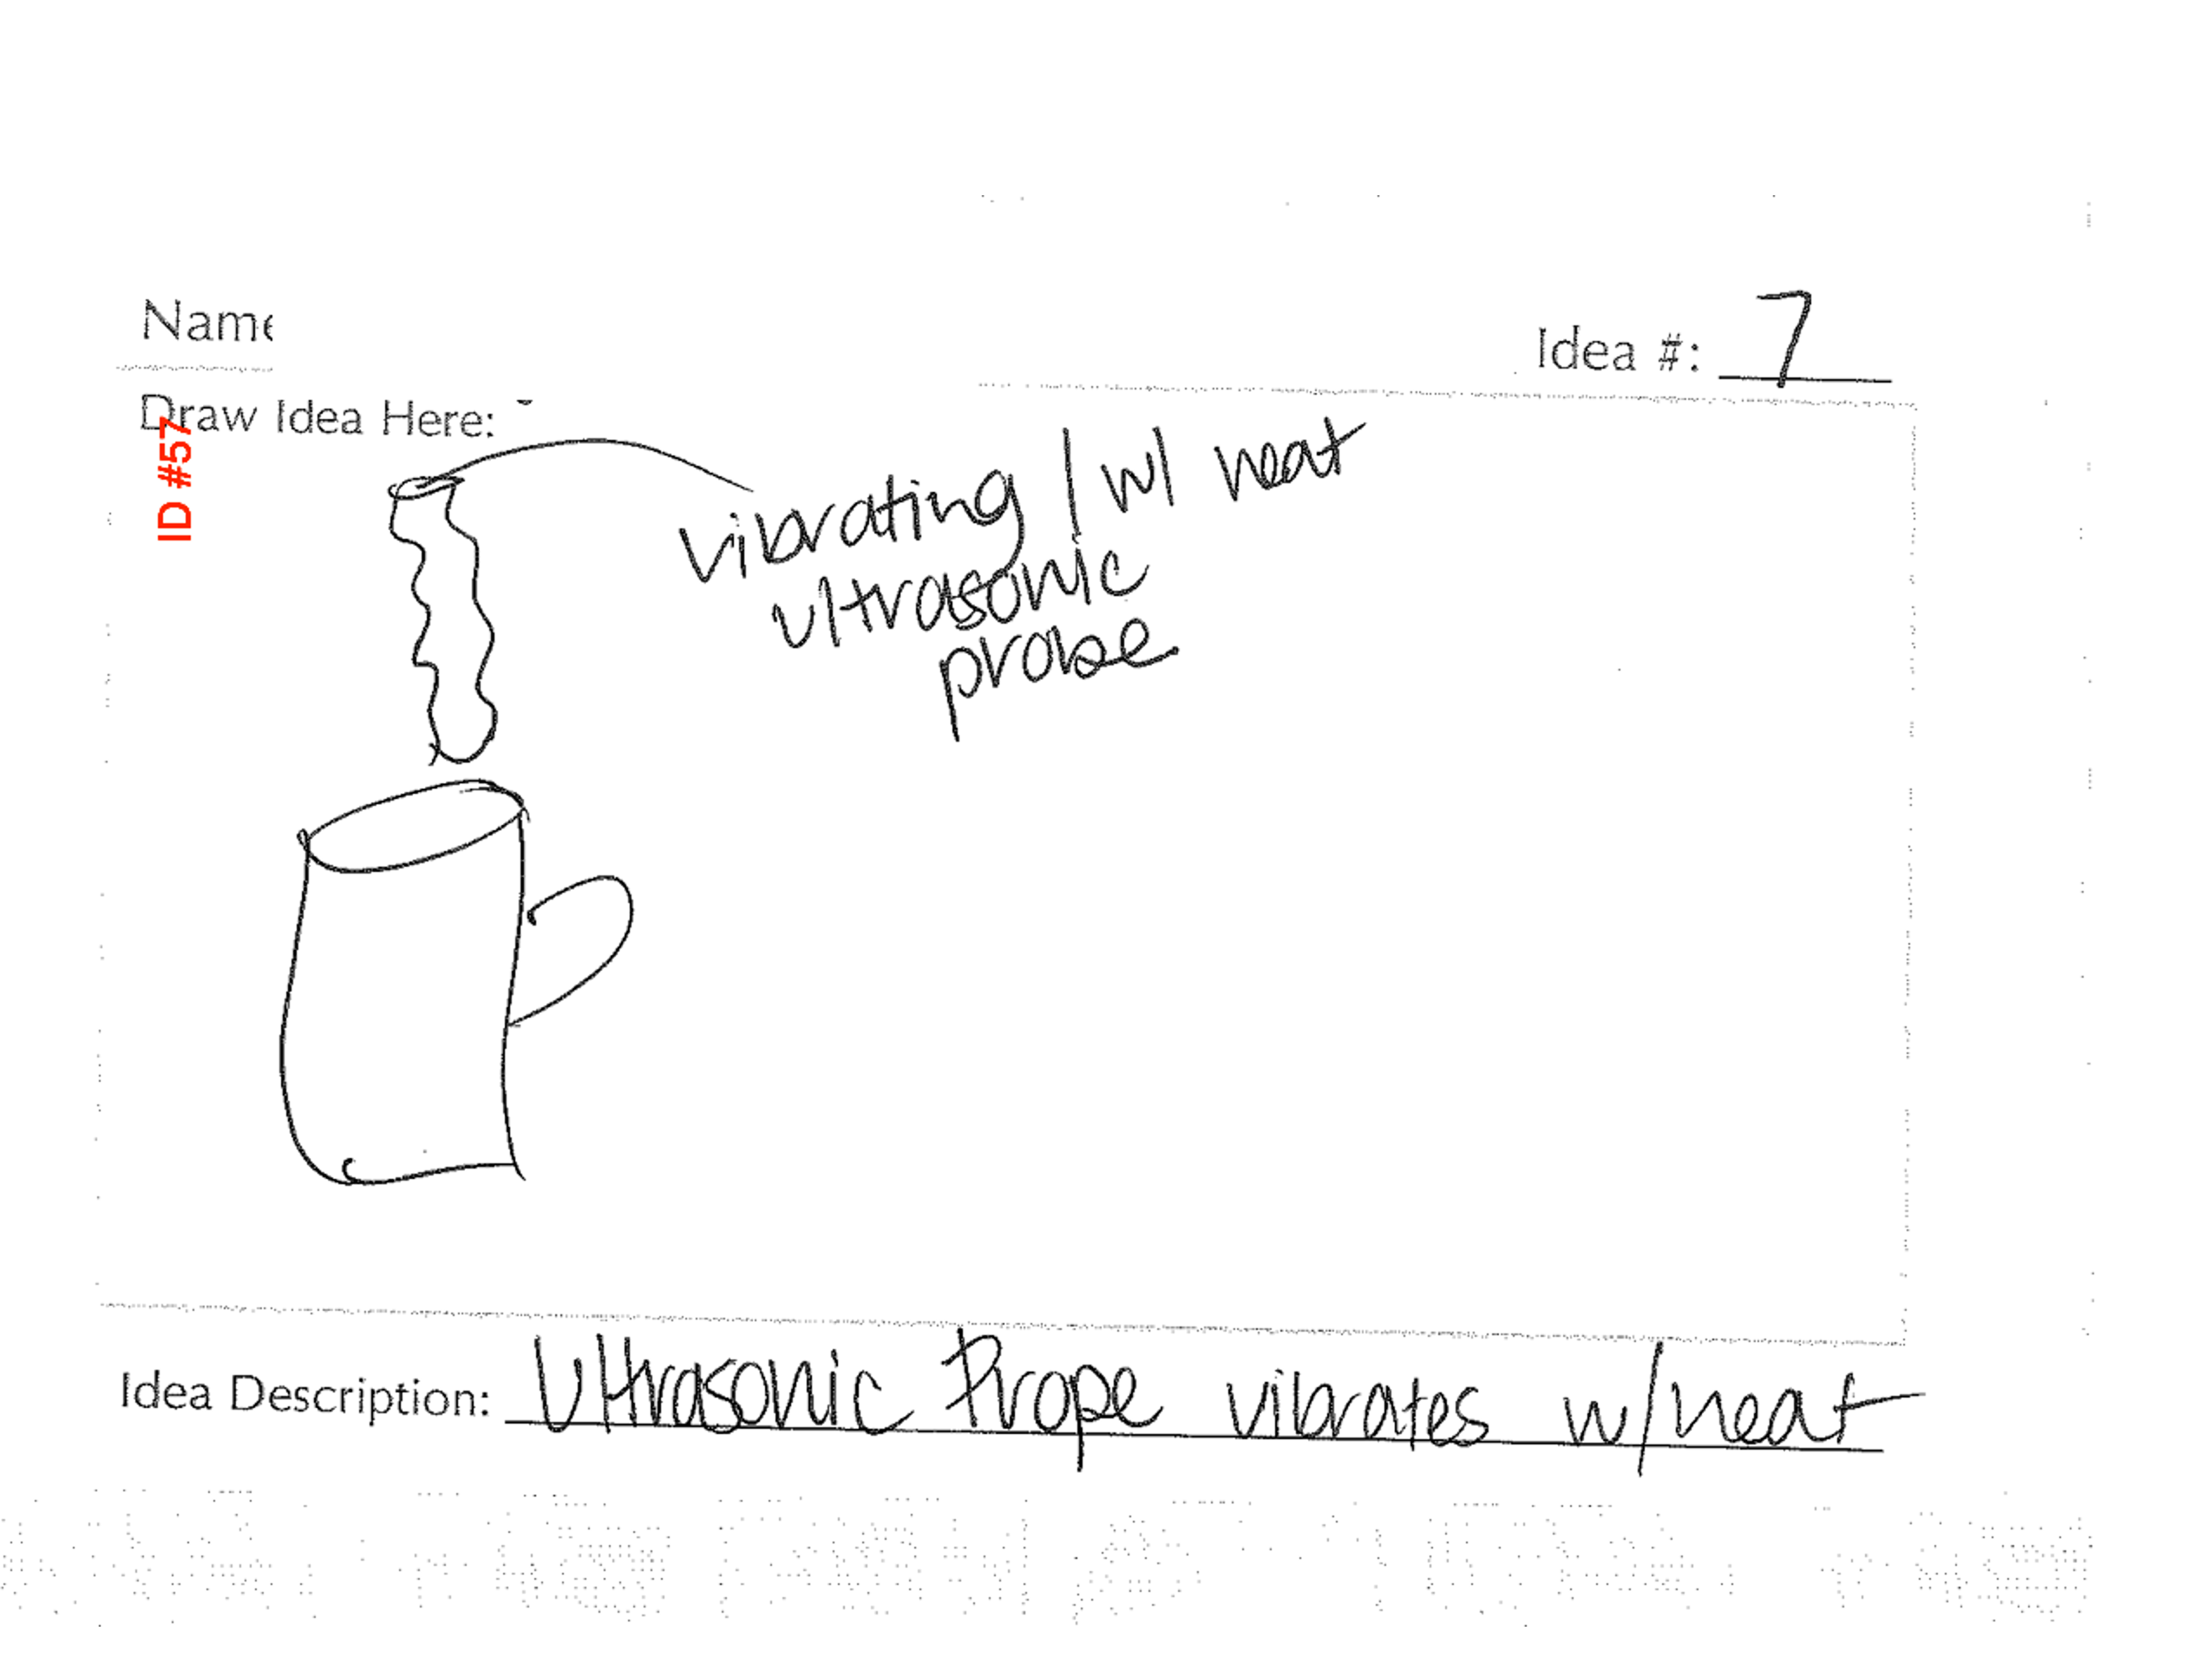 Name
Idea #: 7
Draw Idea Here:
ID #57
vibrating / w/ heat
ultrasonic
probe
Idea Description: Ultrasonic Prope vibrates w/heat